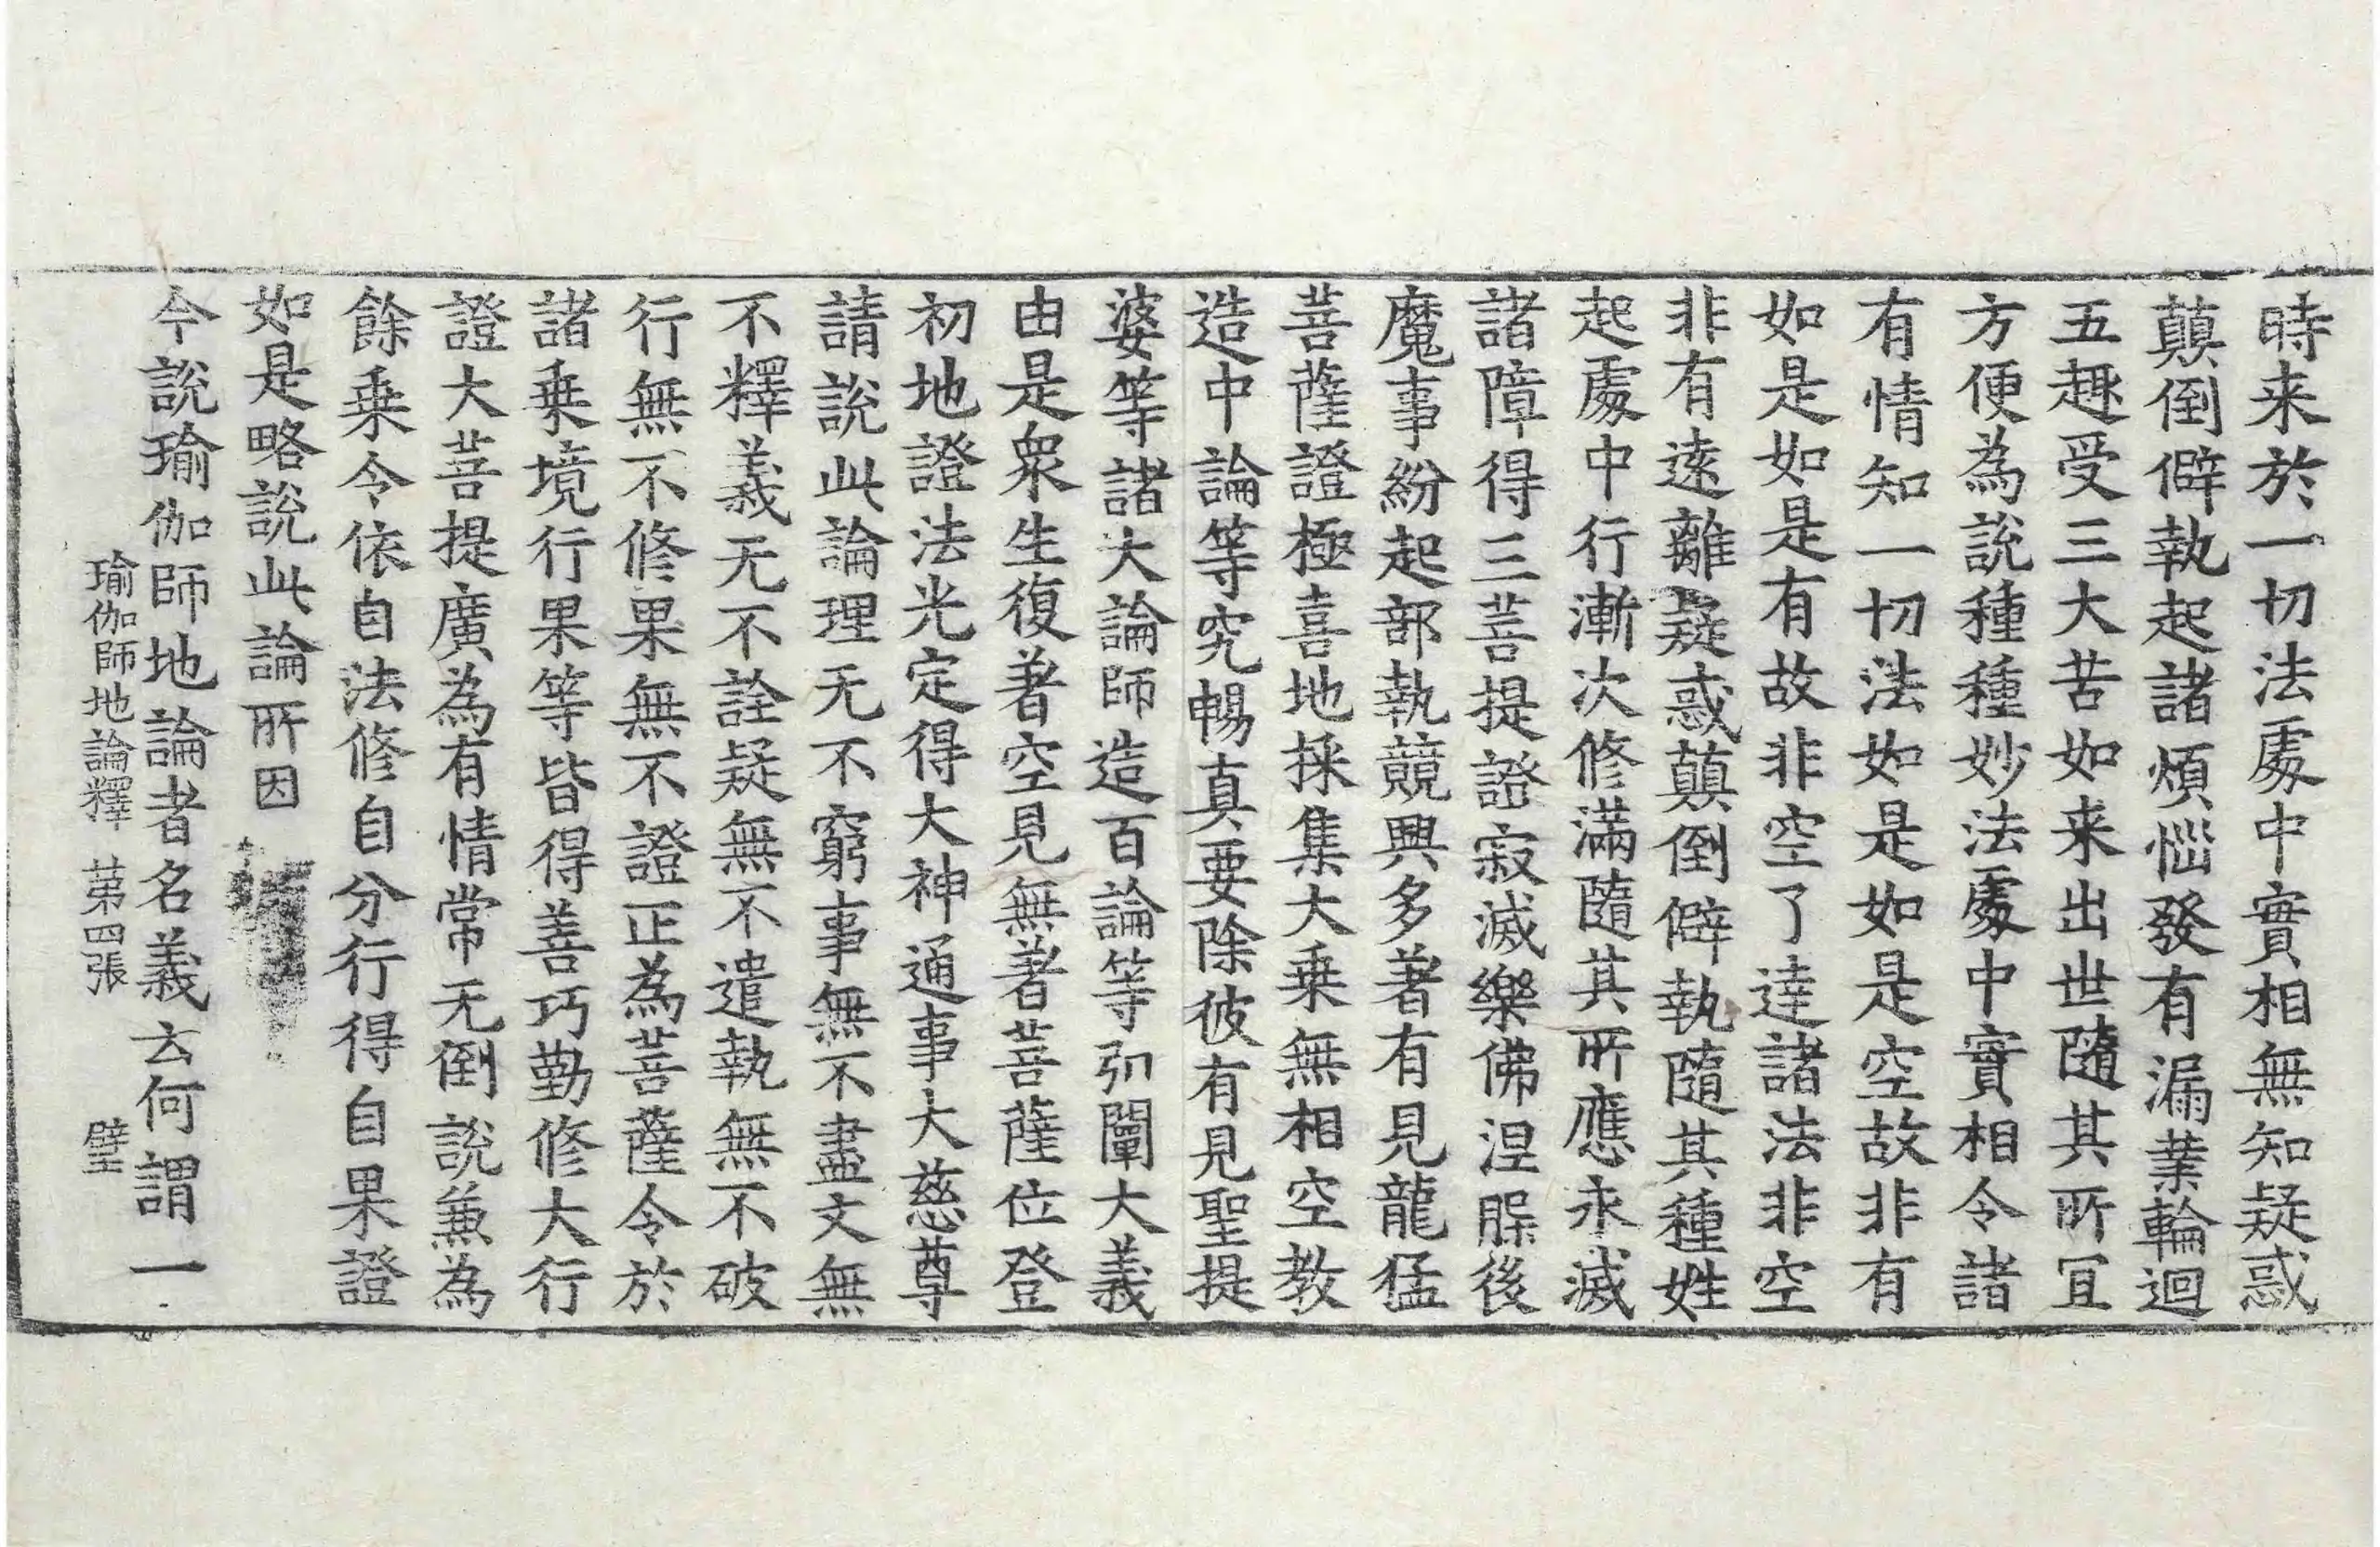 時来於一切法處中實相無知疑惑
顛倒僻執起諸煩惱發有漏業輪迴
五趣受三大苦如来出世隨其所宜
方便為說種種妙法處中實相令諸
有情知一切法如是如是空故非有
如是如是有故非空了達諸法非空
非有遠離疑惑顛倒僻執隨其種姓
起處中行漸次修滿隨其所應永滅
諸障得三菩提證寂滅樂佛涅槃後
魔事紛起部執競興多著有見龍猛
菩薩證極喜地採集大乗無相空教
造中論等究暢真要除彼有見聖提
婆等諸大論師造百論等弘闡大義
由是衆生復著空見無著菩薩位登
初地證法光定得大神通事大慈尊
請說此論理无不窮事無不盡文無
不釋義无不詮疑無不遣執無不破
行無不修果無不證正為菩薩令於
諸乗境行果等皆得善巧勤修大行
證大菩提廣為有情常无倒說兼為
餘乗令依自法修自分行得自果證
如是略說此論所因
今說瑜伽師地論者名義云何謂一
瑜伽師地論釋　苐四張　壁